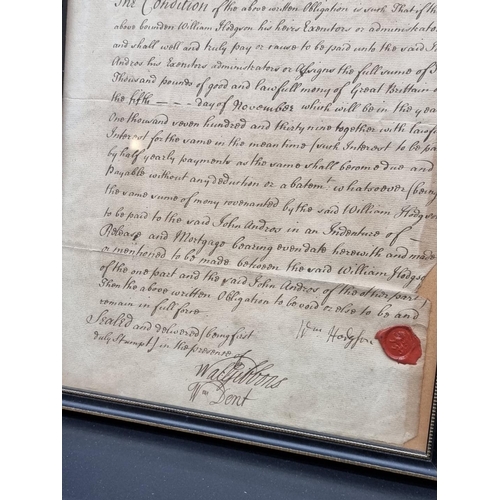 The Condition of the above written Obligation is such That if the
above bounden William Hodgson his heirs Executors or administrators
and shall well and truly pay or cause to be paid unto the said
Andros his Executors administrators or Assigns the full sume of
Thousand pounds of good and lawfull mony of Great Brittain
the fifth ——— day of November which will be in the year
One thousand seven hundred and thirty nine together with lawfu
Interest for the same in the mean time (such Interest to be pa
by half yearly payments as the same shall become due and
payable without any deduction or abatemt whatsoever (being
the same sume of mony covenanted by the said William Hodgson
to be paid to the said John Andros in an Indenture of
Release and Mortgage bearing even date herewith and made
or mentioned to be made between the said William Hodgso
of the one part and the said John Andros of the other part
Then the above written Obligation to be void or else to be and
remain in full force
Wm Hodgson
Sealed and delivered (being first
duly Stampt) in the presence of
Wal Gibbons
Wm Dent